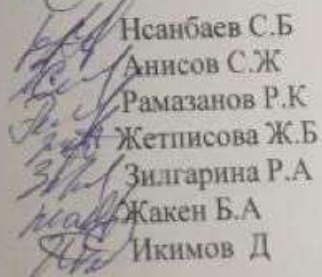 Нсанбаев С.Б
Анисов С.Ж
Рамазанов Р.К
Жетписова Ж.Б
Зилгарина Р.А
Жакен Б.А
Икимов Д